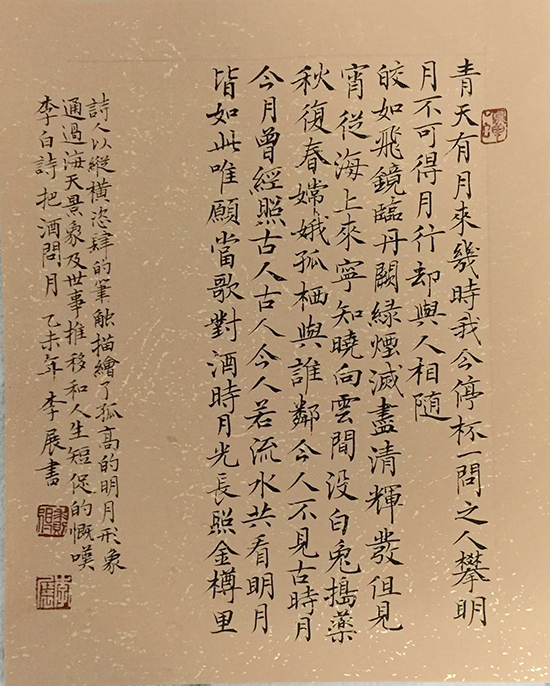 青天有月來幾時我今停杯一問之人攀明
月不可得月行却與人相隨
皎如飛鏡臨丹闕緑煙滅盡清輝發但見
宵從海上來寧知曉向雲間没白兎搗藥
秋復春嫦娥孤栖與誰鄰今人不見古時月
今月曾經照古人古人今人若流水共看明月
皆如此唯願當歌對酒時月光長照金樽里
詩人以縱橫恣肆的筆触描繪了孤高的明月形象
通過海天景象及世事推移和人生短促的慨嘆
李白詩把酒問月 乙未年李展書